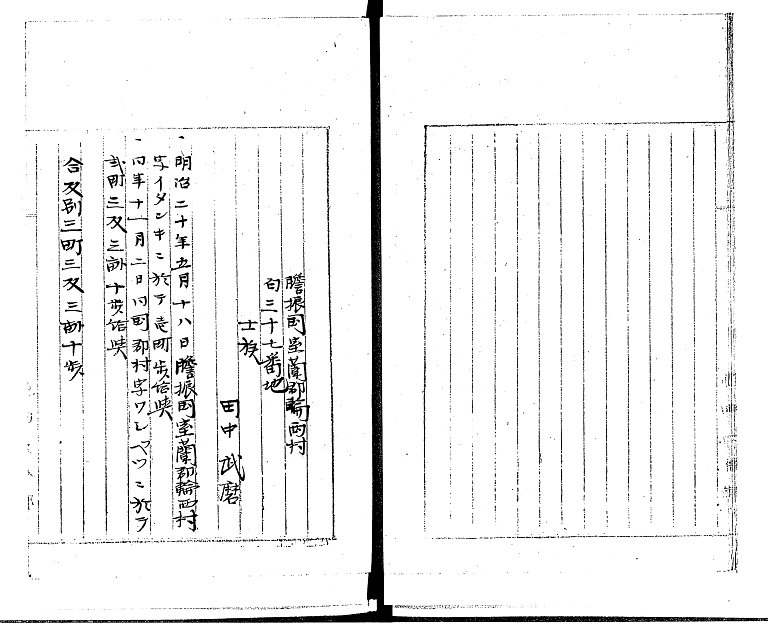 膽振国室蘭郡輪西村
百三十七番地
士族
田中武磨
一明治二十年五月十八日膽振国室蘭郡輪西村
字イタンキニ於テ壱町歩給與
一同年十一月二日同国郡村字ワレベツニ於テ
弐町三反三畝十歩給與
合反別三町三反三畝十歩